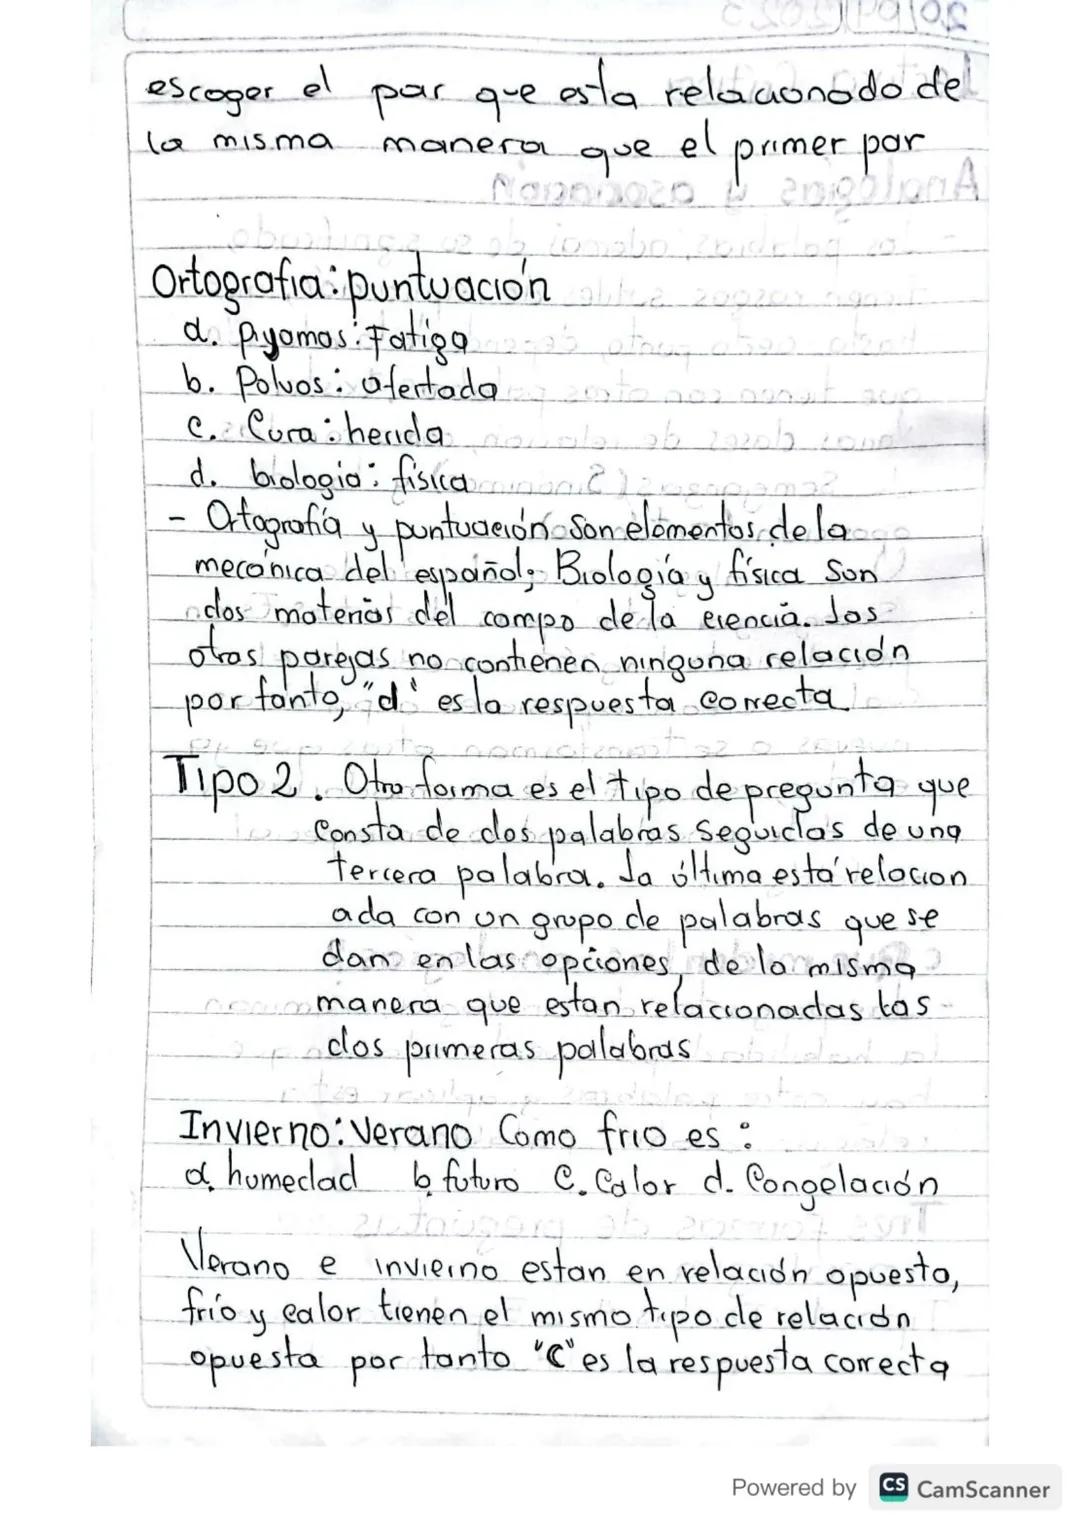 escoger el par que esta relacionado de
la misma manera que el primer par
Ortografia: puntuación
a. Piyamas: Fatiga
b. Polvos: ofertada
c. Cura: herida
d. biologia: física
- Ortografía y puntuación son elementos de la
mecánica del español; Biología y física son
dos materias del campo de la ciencia. Las
otras parejas no contienen ninguna relación
por tanto, "d" es la respuesta correcta
Tipo 2. Otra forma es el tipo de pregunta que
Consta de dos palabras seguidas de una
tercera palabra. La última está relacion
ada con un grupo de palabras que se
dan en las opciones, de la misma
manera que estan relacionadas las
dos primeras palabras
Invierno: Verano Como frio es :
a. humedad b. futuro C. Calor d. Congelación
Verano e invierno estan en relación opuesta,
frío y calor tienen el mismo tipo de relación
opuesta por tanto "C" es la respuesta correcta
Powered by CS CamScanner